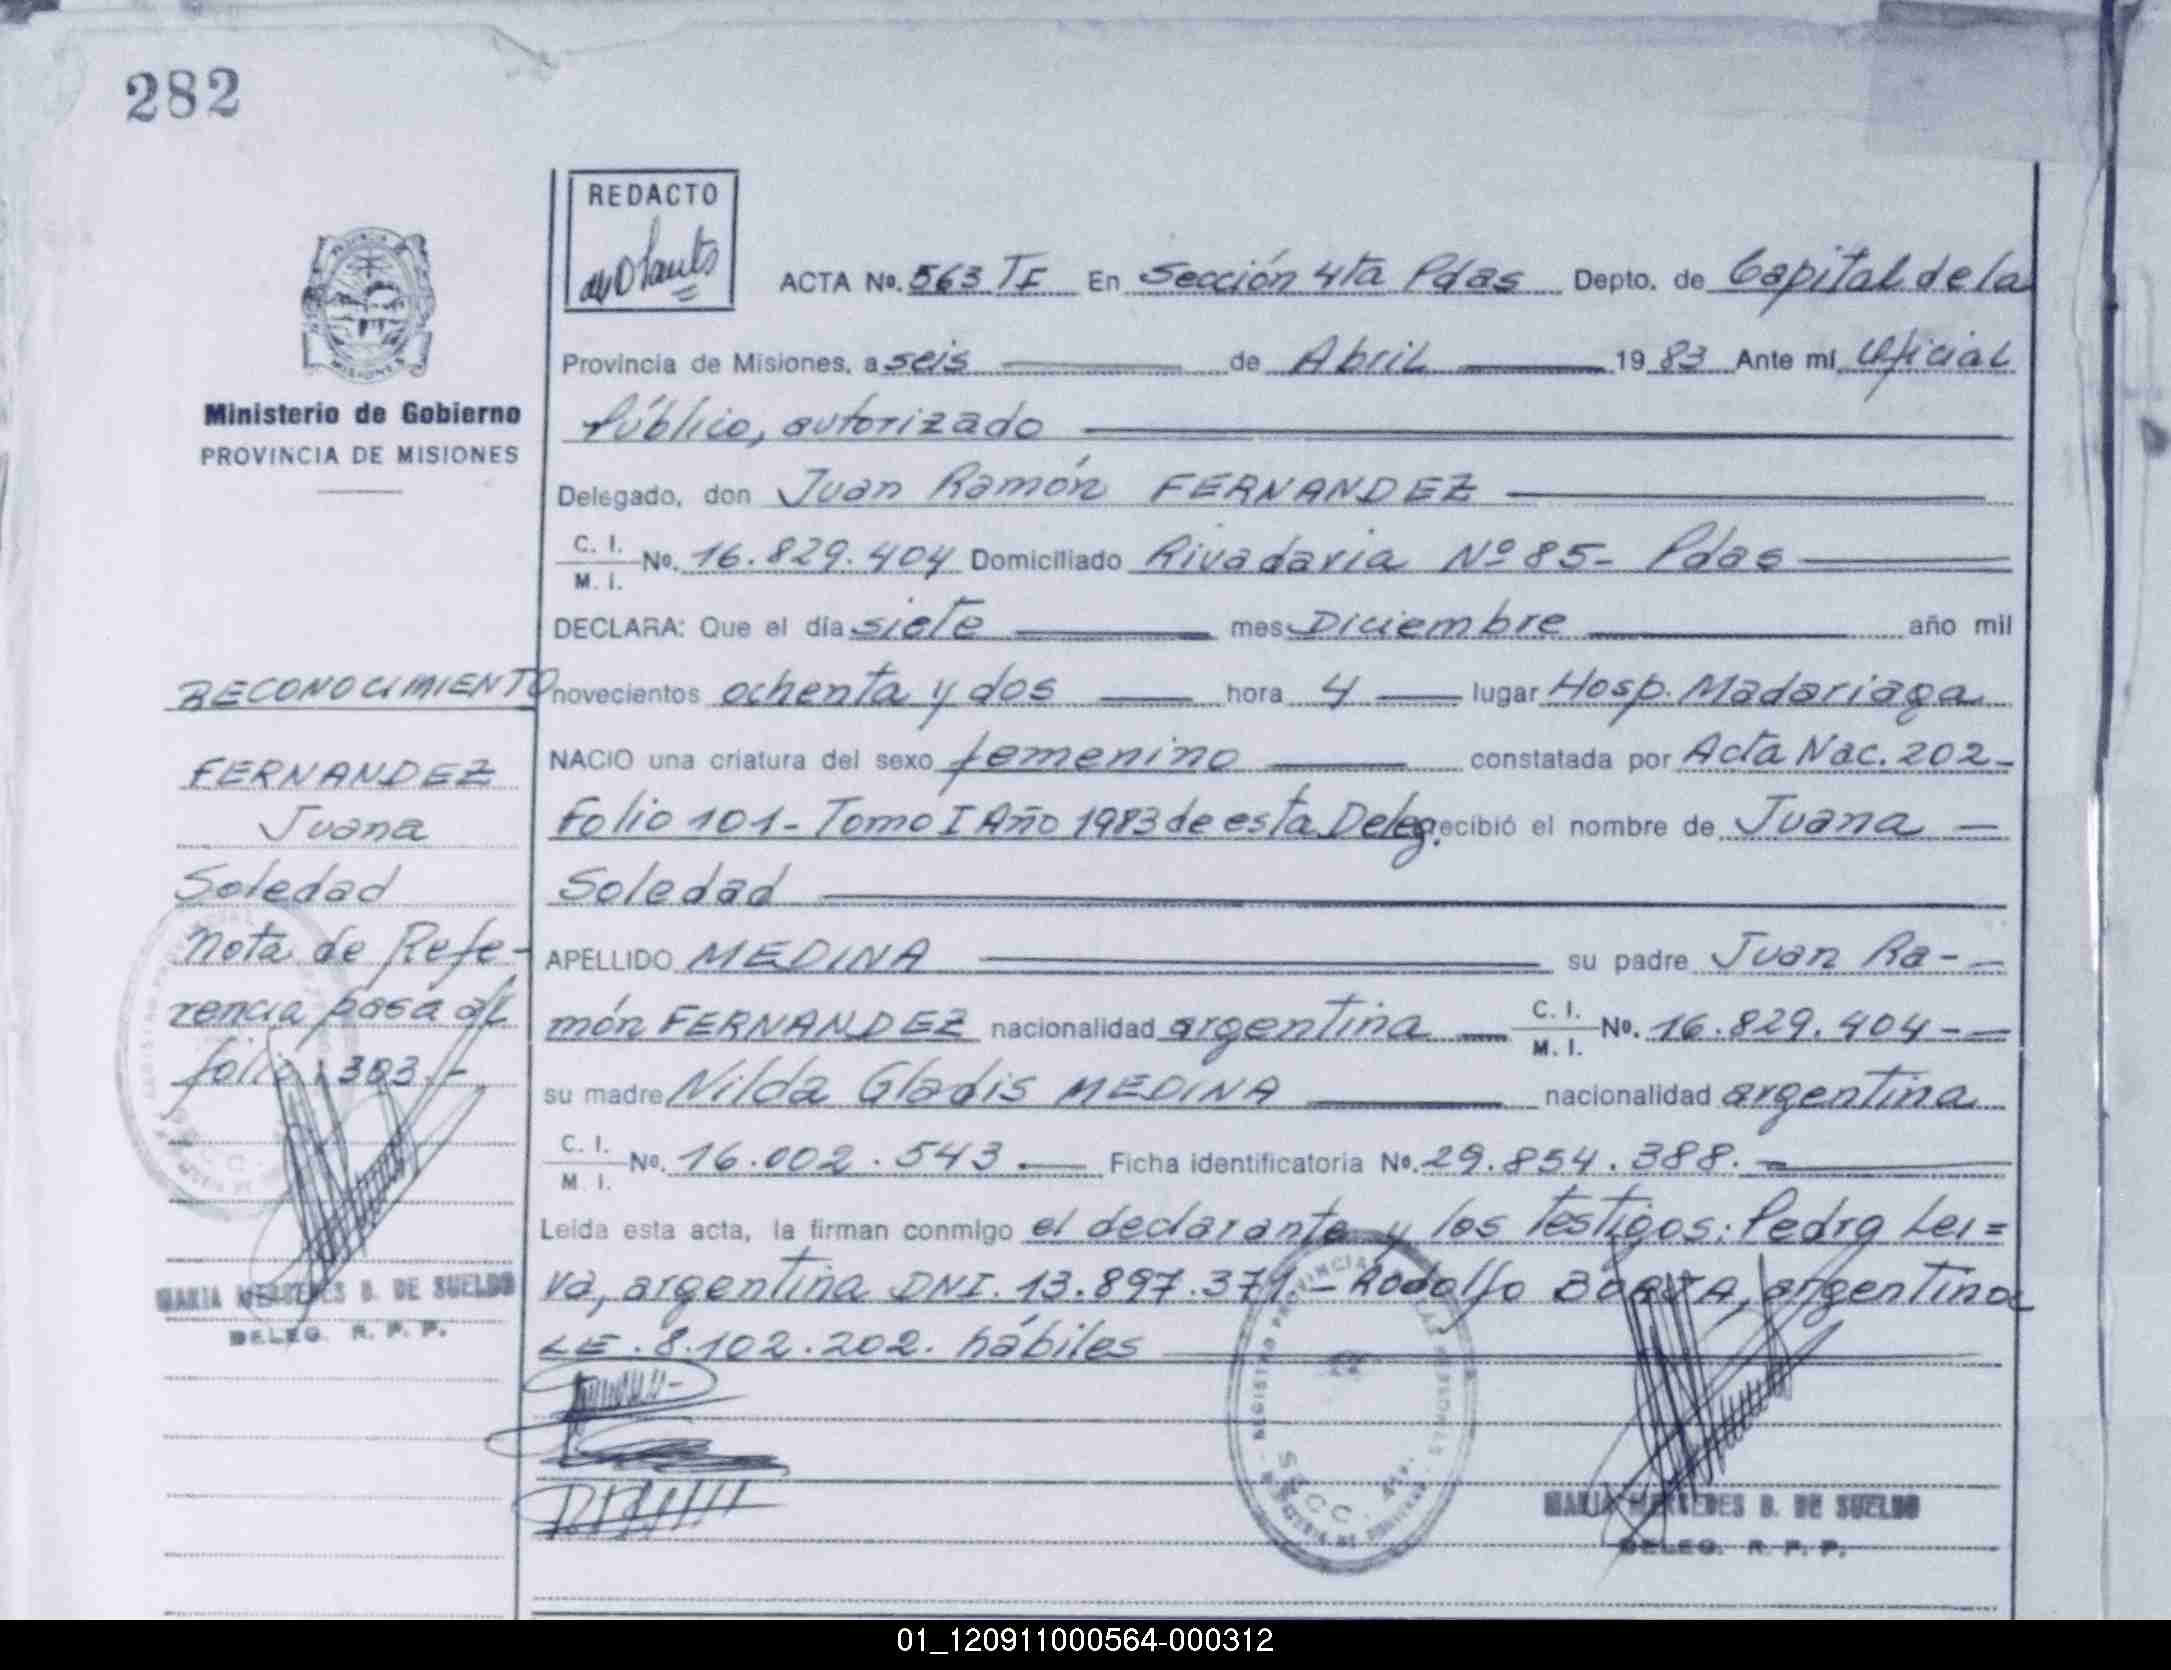 282
REDACTO
ACTA No. 563 TI En Sección 4ta Pdas Depto. de Capital de la
Provincia de Misiones, a seis de Abril 1983 Ante mí Oficial
Ministerio de Gobierno
PROVINCIA DE MISIONES
Público, autorizado
Delegado, don Juan Ramón FERNANDEZ
C. I.
M. I.
No. 16.829.404 Domiciliado Rivadavia Nº 85- Pdas
DECLARA: Que el día siete mes Diciembre año mil
novecientos ochenta y dos hora 4 lugar Hosp. Madariaga
NACIO una criatura del sexo femenino constatada por Acta Nac. 202-
Folio 101- Tomo I Año 1983 de esta Deleg. ecibió el nombre de Juana
Soledad
APELLIDO MEDINA su padre Juan Ra-
món FERNANDEZ nacionalidad argentina C. I. M. I. No. 16.829.404-
su madre Nilda Gladis MEDINA nacionalidad argentina
C. I.
M. I.
No. 16.002.543. Ficha identificatoria No. 29.854.388.
Leída esta acta, la firman conmigo el declarante y los testigos: Pedro Lei=
va, argentina DNI. 13.897.371.- Rodolfo argentina
LE. 8.102.202. hábiles
RECONOCIMIENTO
FERNANDEZ
Juana
Soledad
Nota de Refe-
rencia pasa al
folio: 303.-
MARIA MERCEDES B. DE SUELDO
DELEG. R. P. P.
MARIA MERCEDES B. DE SUELDO
DELEG. R. P. P.
01_120911000564-000312